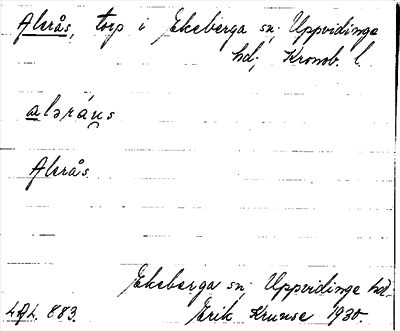 Alerås, torp i Ekeberga sn; Uppvidinge
hd; Kronob. l.
aləráus
Alerås.
Ekeberga sn, Uppvidinge hd.
LAL. 883. Erik Krause 1930.